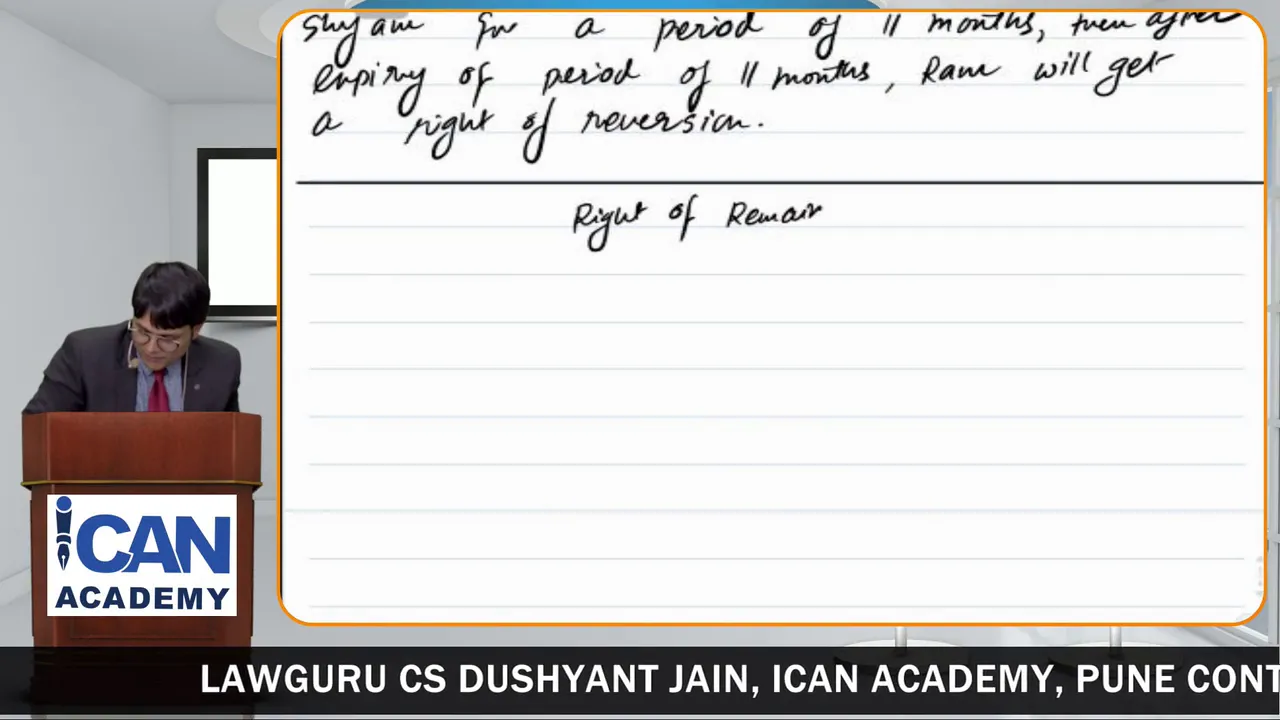 Shyam for a period of 11 months, then after
expiry of period of 11 months, Ram will get
a right of reversion.
Right of Remain
iCAN
ACADEMY
LAWGURU CS DUSHYANT JAIN, ICAN ACADEMY, PUNE CONT